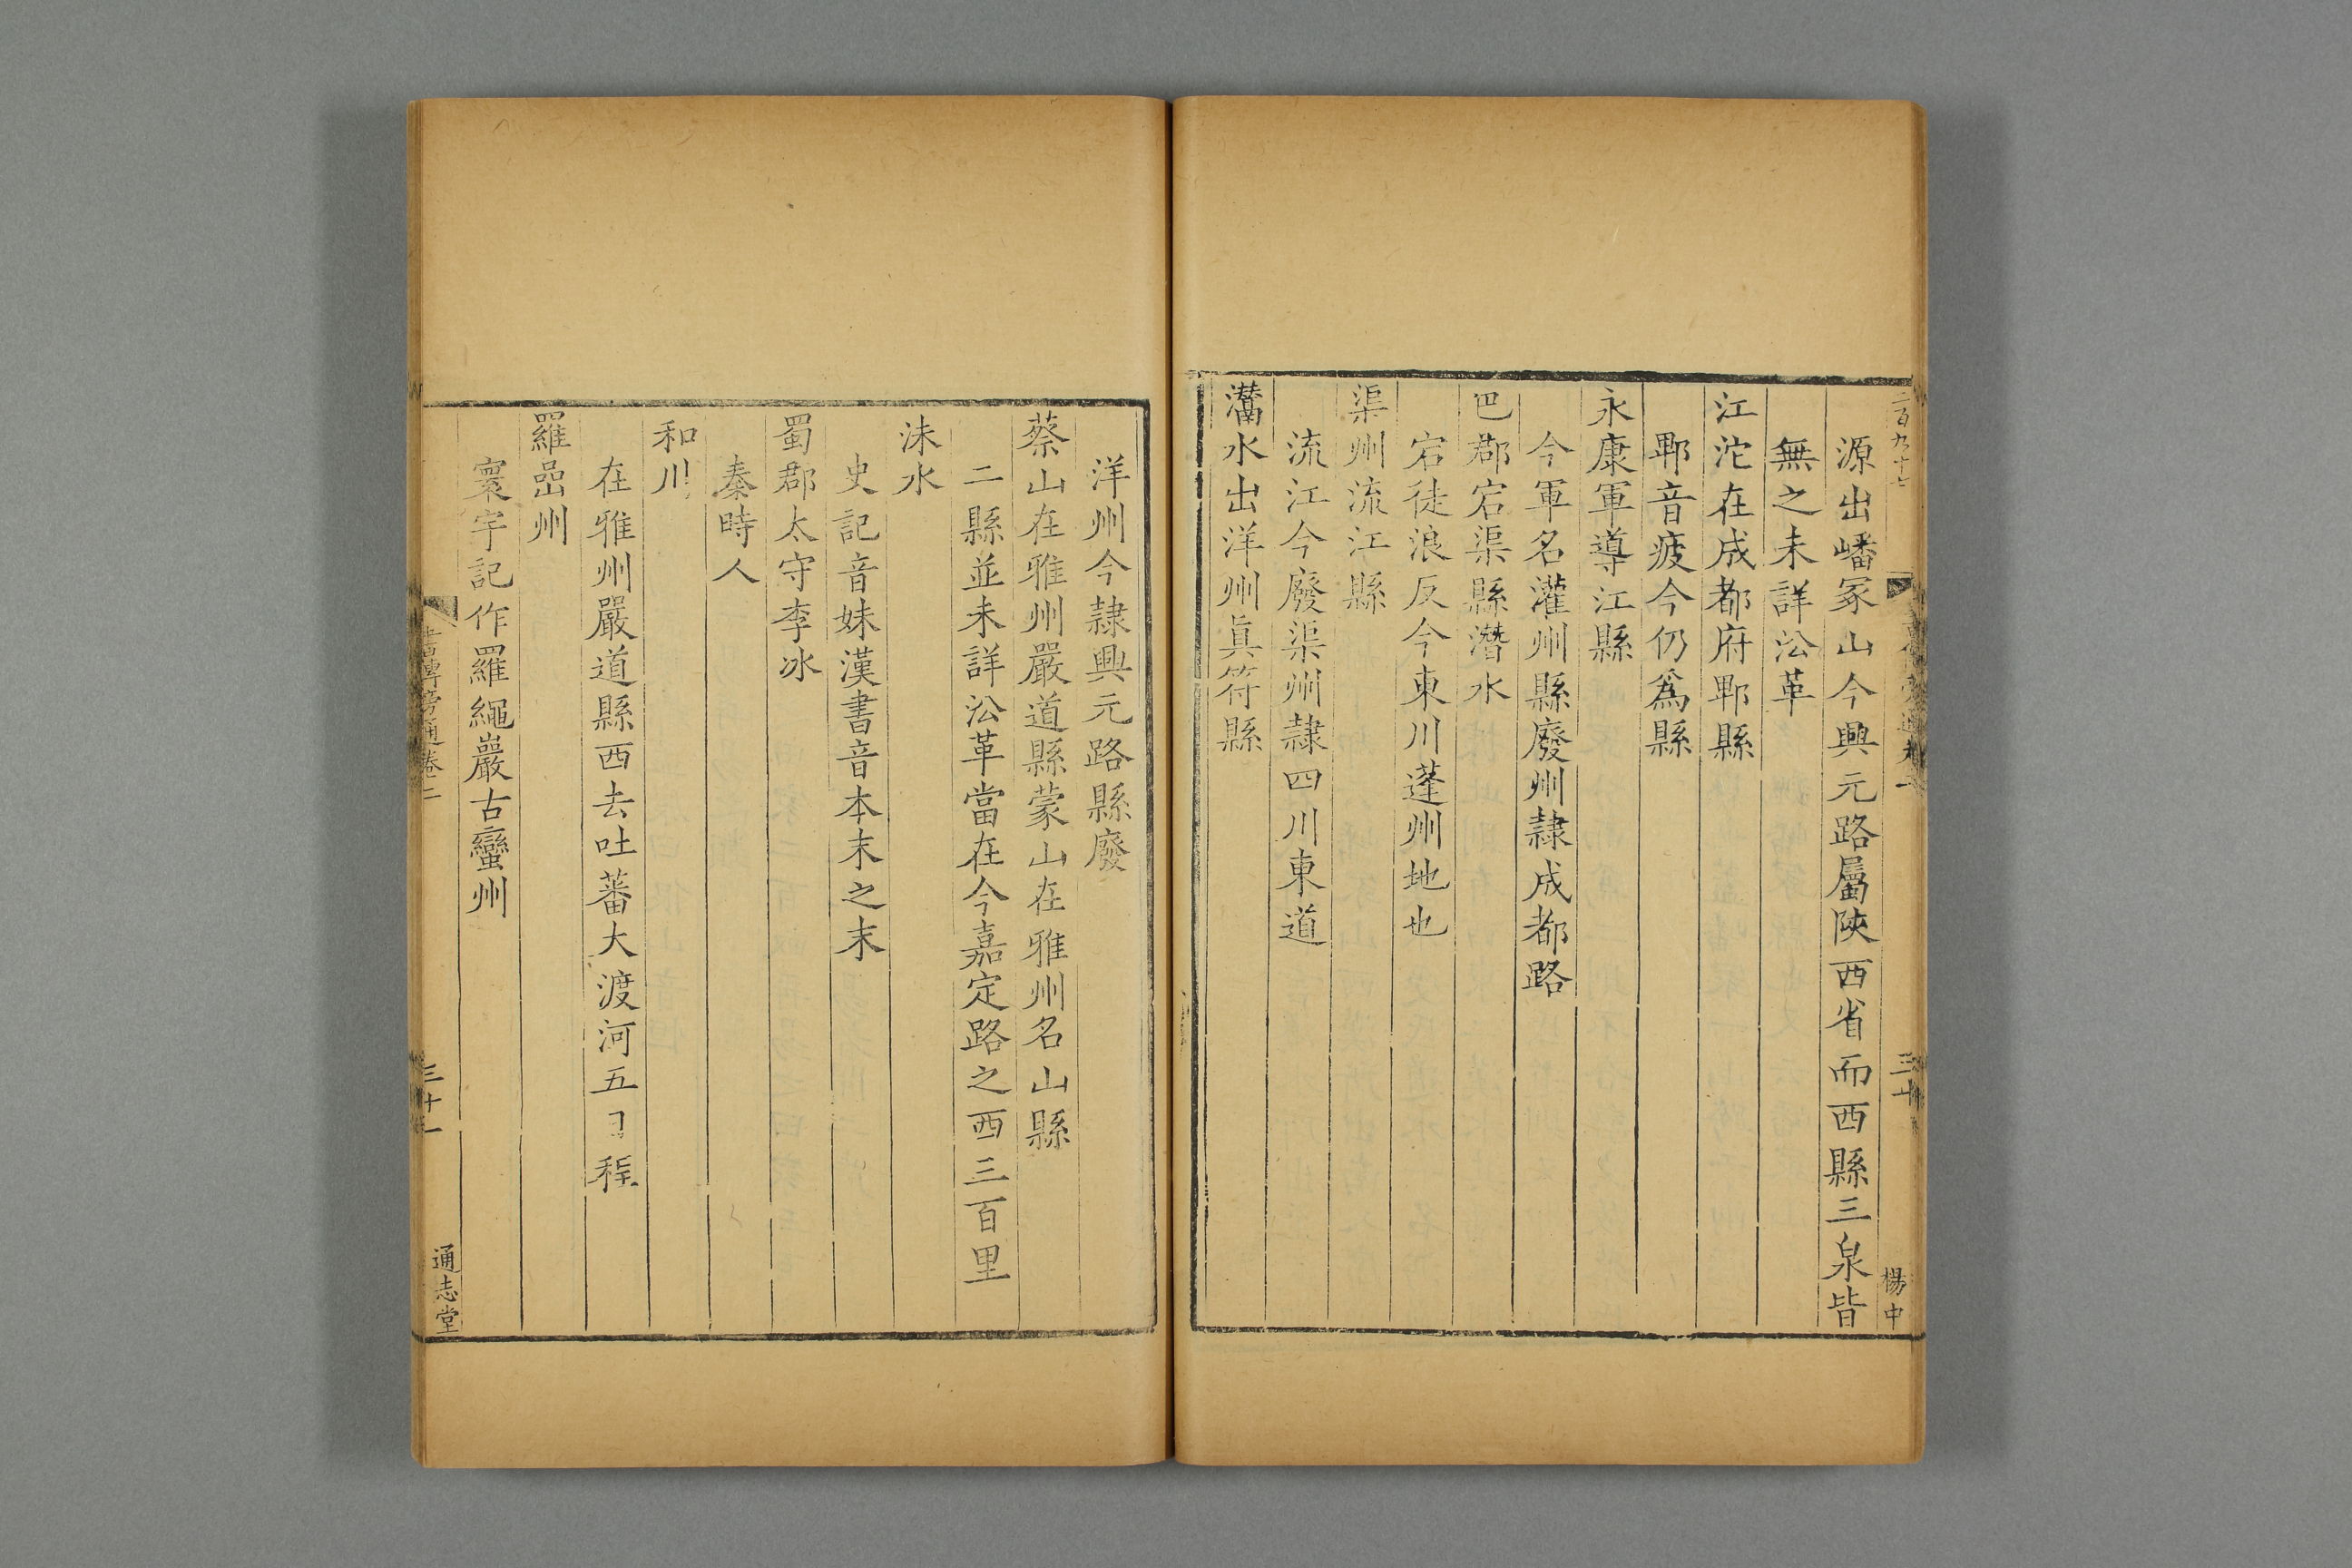 源出嶓冢山今興元路屬陝西省而西縣三泉皆
無之未詳㳂革
江沱在成都府郫縣
郫音疲今仍爲縣
永康軍導江縣
今軍名灌州縣廢州隷成都路
巴郡宕渠縣潛水
宕徒浪反今東川蓬州地也
渠州流江縣
流江今廢渠州隷四川東道
灊水出洋州眞符縣
洋州今隷興元路縣廢
蔡山在雅州嚴道縣蒙山在雅州名山縣
二縣並未詳㳂革當在今嘉定路之西三百里
沬水
史記音妹漢書音本末之末
蜀郡太守李冰
秦時人
和川
在雅州嚴道縣西去吐蕃大渡河五日程
羅嵒州
寰宇記作羅繩巖古蠻州
二百九十七
三十
楊中
書傳旁通卷二
三十一
通志堂